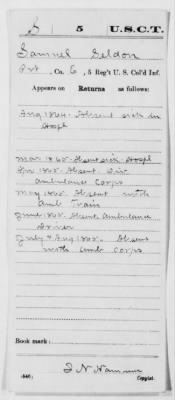 S 5 U.S.C.T.
Samuel Seldon
Pvt, Co. E, 5 Reg't U. S. Col'd Inf.
Appears on Returns as follows:
Aug 1864. Absent sick in
Hospl
Mar 1865. Absent sick Hospl
Apr 1865. Absent. Div.
Ambulance Corps
May 1865. Absent with
Amb Train
June 1865. Absent Ambulance
Driver
July & Aug 1865. Absent
with Amb Corps
Book mark:
(546) Copyist.